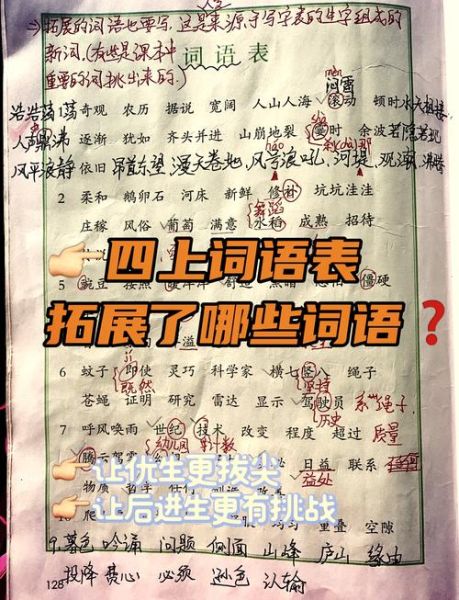 →拓展的词语也要写,这是来源于写字表的生字组成的
新词.(有些是课本中
重要的词挑出来的.)
词语表
mèn
闷雷
浩浩荡荡 奇观 农历 据说 宽阔 人山人海 滚动 顿时 水天相接
人声鼎沸 逐渐 犹如 齐头并进 山崩地裂 霎时 余波 若隐若现
风平浪静 依旧 昂首东望 漫天卷地 风号浪吼 河堤 观潮 沸腾
2 柔和 鹅卵石 河床 新鲜 修补 坑坑洼洼
舞蹈
庄稼 风俗 葡萄 满意 水稻 成熟 招待
👉🏻四上词语表
5 豌豆 按照 舒适 僵硬
拓展了哪些词语❓
溢
jí
6 蚊子 即使 灵巧 科学家 横七竖八 绳子
既然 坚持
苍蝇 证明 研究 雷达 显示 驾驶员 系绳子
历史
7 呼风唤雨 世纪 技术 改变 程度 超过 质量
幼儿园
腾云驾雾 日益 联系
👉🏻让优生更拔尖 益处
物质 哲学 改善
👉🏻让后进生更有挑战
重叠 空隙
9.暮色 吟诵 问题 侧面 山峰 庐山 缘由
128 投降 费心 必须 逊色 认输